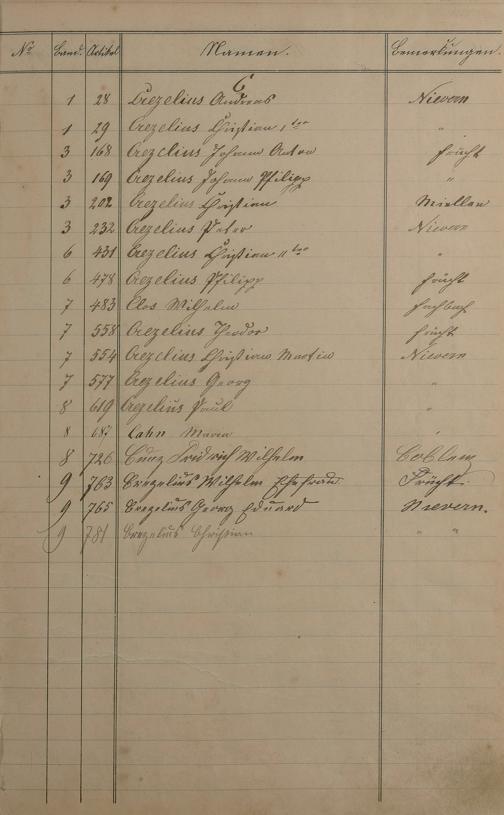 No Band. Artikel Namen. Bemerkungen.
C
1 28 Crezelius Andreas Nievern
1 29 Crezelius Christian 1ter "
3 168 Crezelius Johann Anton Frücht
3 169 Crezelius Johann Philipp "
3 202 Crezelius Christian Miellen
3 232 Crezelius Peter Nievern
6 431 Crezelius Christian 11ter "
6 478 Crezelius Philipp Frücht
7 483 Clos Wilhelm Fachbach
7 558 Crezelius Theodor Frücht
7 554 Crezelius Christian Martin Nievern
7 577 Crezelius Georg "
8 619 Crezelius Paul "
8 687 Cahn Maria
8 726 Cunz Fridrich Wilhelm Coblenz
9 763 Crezelius Wilhelm Ehefrau Frücht.
9 765 Crezelius Georg Eduard Nievern.
9 781 Crezelius Christian " "